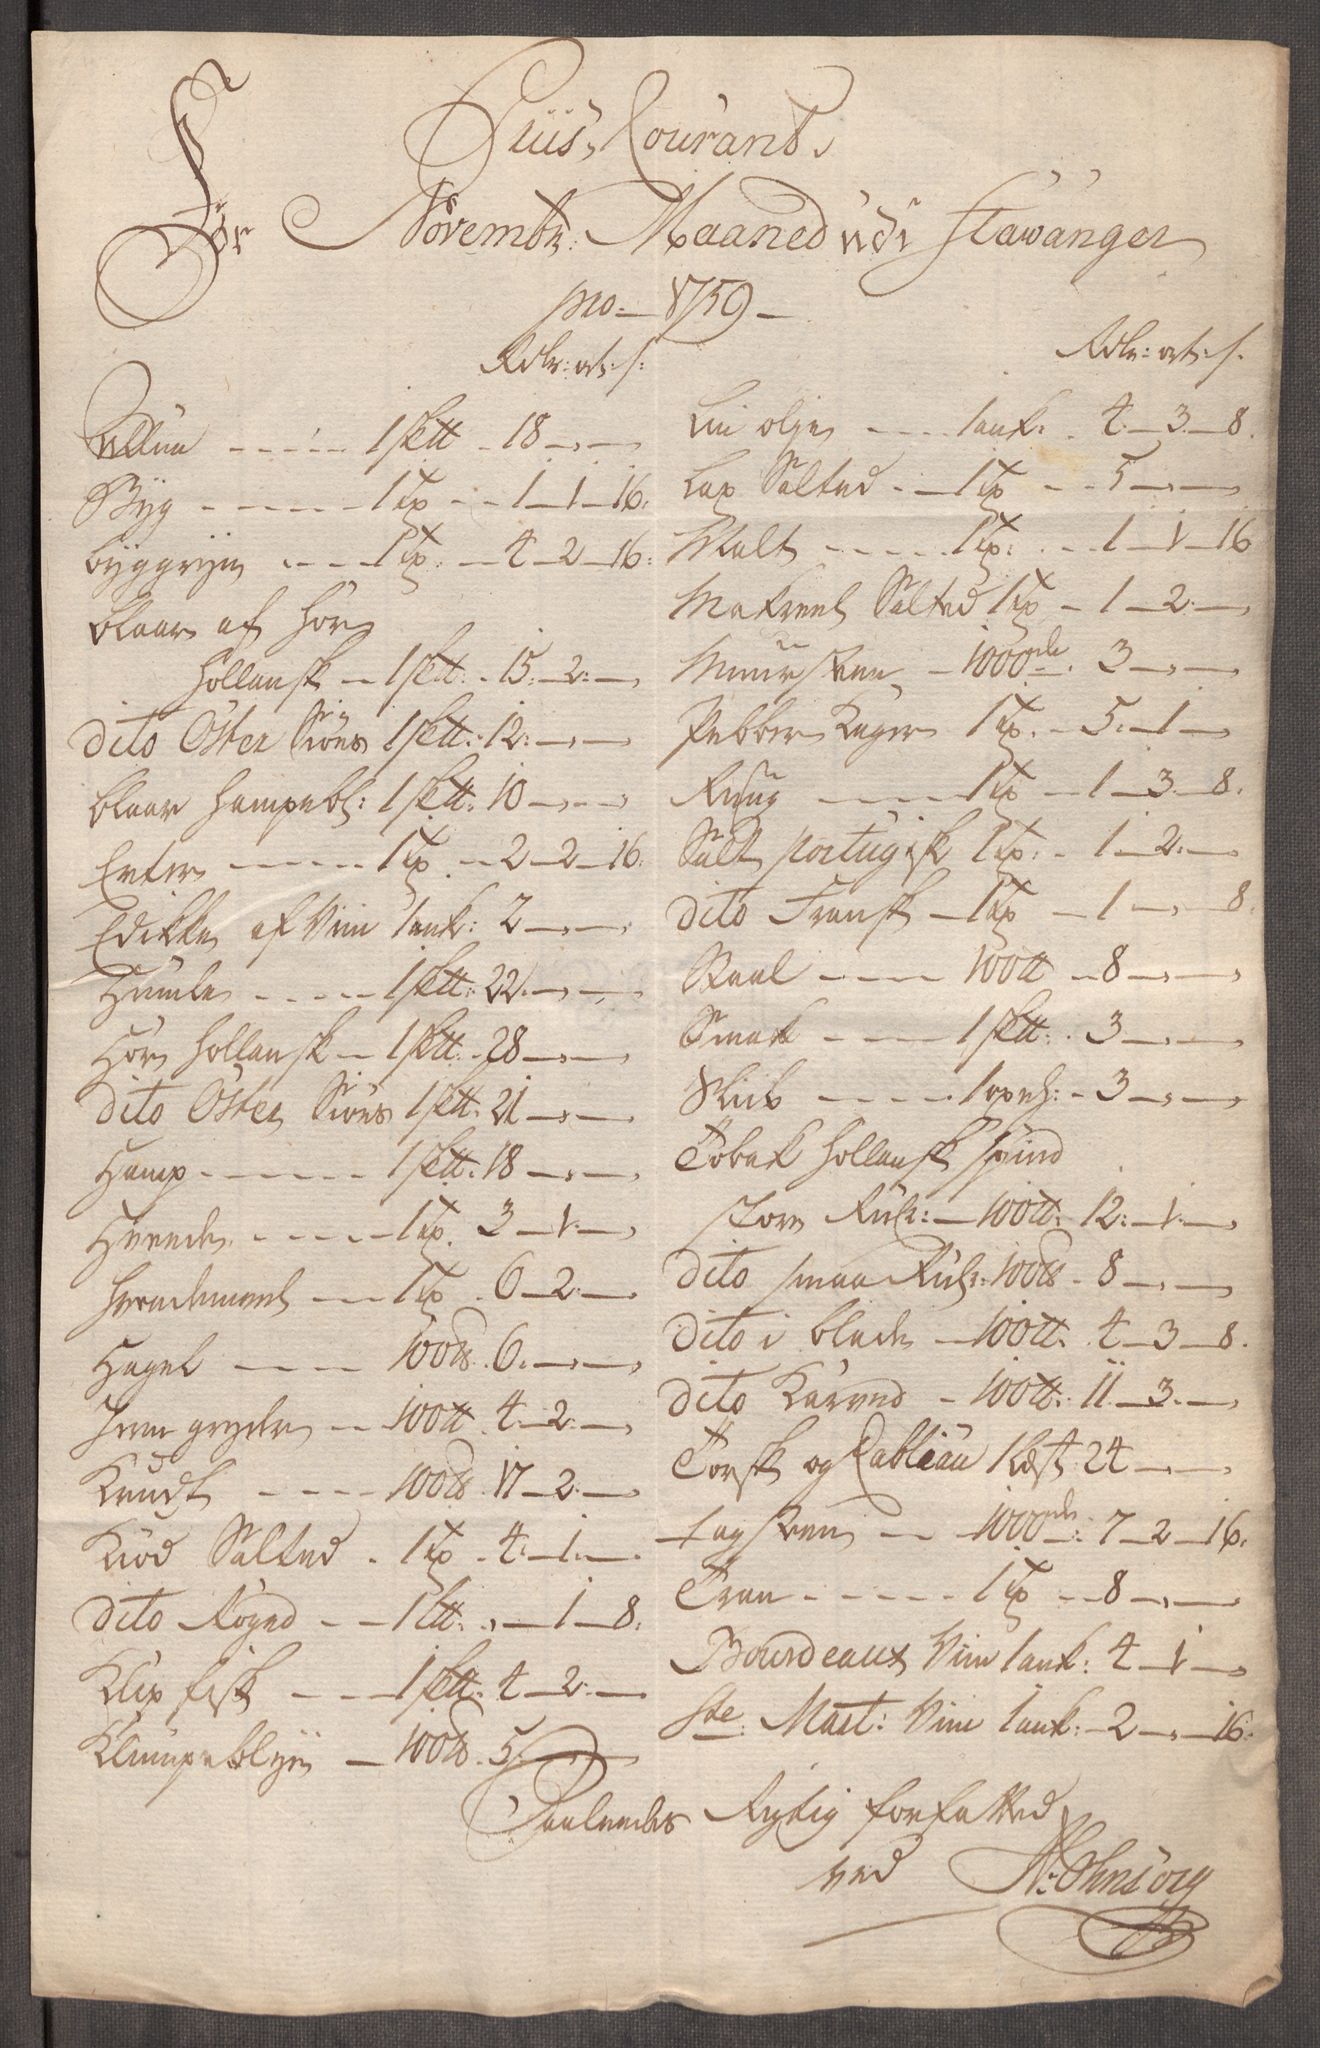 Priis Courant
For Novembr: Maaned udi Stawanger
pro 1759
Rdlr: ort: s:
Allun 1 sk℔ 18 — —
Byg 1 Tp 1 — 1 — 16:
byggryn 1 Tp: 4 — 2 — 16:
blaar af Hør
Hollansk 1 sk℔: 15: — 2: —
dito Öster Siøes 1 sk℔: 12: — —
blaar Hampebl: 1 sk℔: 10 — —
Erter 1 Tp. 2 — 2 — 16:
Edikke af Viin 1 ank: 2 — —
Humle 1 sk℔: 22: — —
Hør Hollansk 1 sk℔: 28 — —
dito Öster Siøes 1 sk℔: 21 — —
Hamp 1 sk℔: 18 — —
Hvede 1 Tp. 3 — 1: —
Hvedemeel 1 Tp. 6 — 2: —
Hagel 100 ℔. 6: — —
Jern gryder 100 ℔ 4: — 2: —
Krudt 100 ℔. 17 — 2: —
Kiød Salted 1 Tp. 4: — 1: —
dito Røged 1 ℔: — 1 — 8:
Klip fisk 1 sk℔: 4 — 2: —
Klumpeblyn 100 ℔. 5 — —
Rdlr: ort: s:
Lin olje 1 ank: 4 — 3 — 8.
Lax Saltet 1 Tp 5 — —
Malt 1 Tp: 1 — 1 — 16
Makreel Salted 1 Tp 1 — 2: —
Muursteen 1000de 3 — —
Pebber Kager 1 Tp. 5: — 1 —
Rug 1 Tp 1 — 3 — 8.
Salt portugisk 1 Tp: 1 — 2: —
dito Fransk 1 Tp 1 — — 8.
Staal 100 ℔ 8 — —
Smak 1 sk℔: 3 — —
Tobak Hollansk spind
store Rul: 100 ℔: 12: — 1: —
dito smaa Rul: 100 ℔. 8 — —
dito i blade 100 ℔: 4 — 3 — 8.
dito Karved 100 ℔: 11 — 3: —
Torsk og Cabliau 1 Læst 24 — —
Tagsteen 1000de: 7 — 2 — 16:
Tran 1 Tp 8 — —
Bourdeaux Viin 1 ank: 4 — 1 —
Ste: Mart: Viin 1 ank: 2 — — 16:
Saaledes Rigtig forfatted
ved N: Ohnsorg